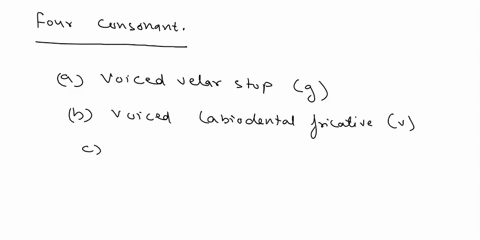 Four consonant.
(a) Voiced velar stop (g)
(b) Voiced labiodental fricative (v)
c)